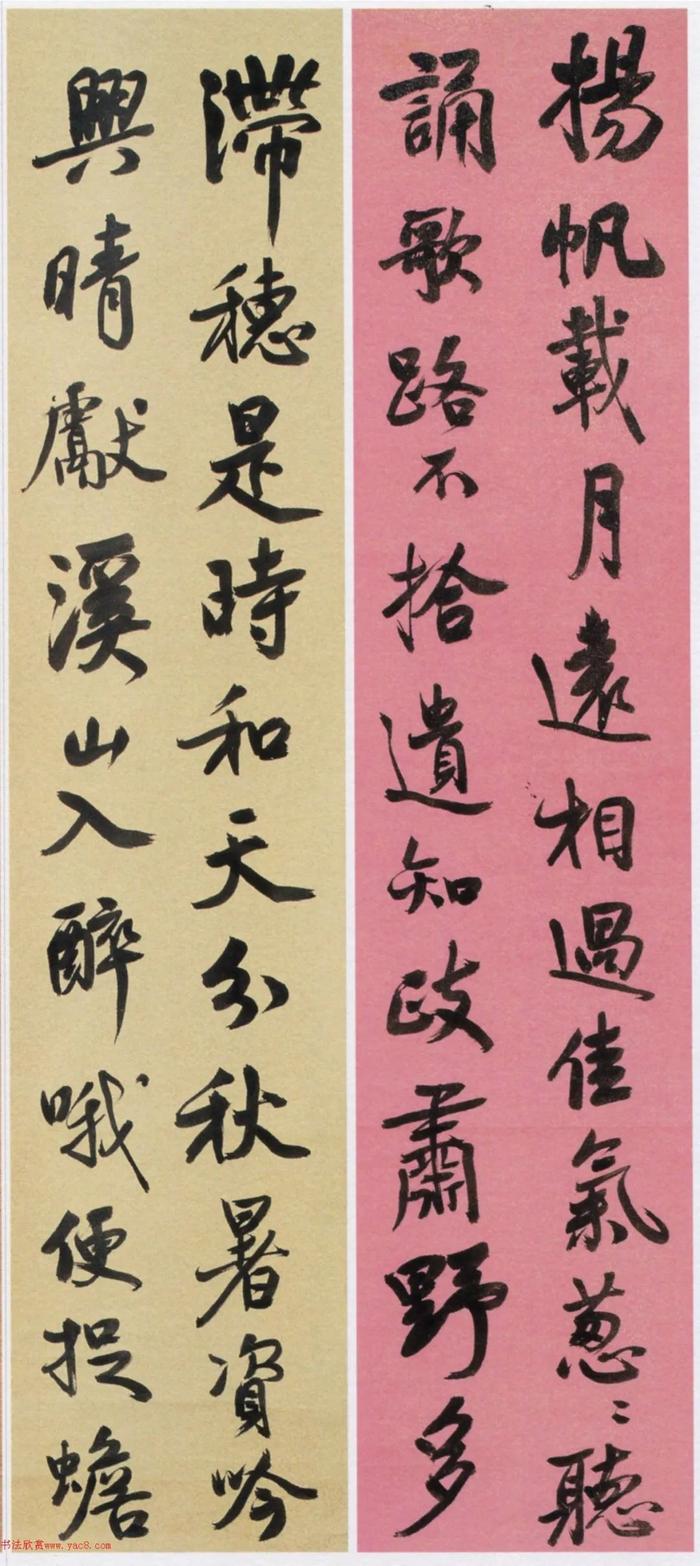 揚帆載月遠相過佳氣葱〻聽
誦歌路不拾遺知政肅野多
滯穗是時和天分秋暑資吟
興晴獻溪山入醉哦便捉蟾
书法欣赏www.yac8.com